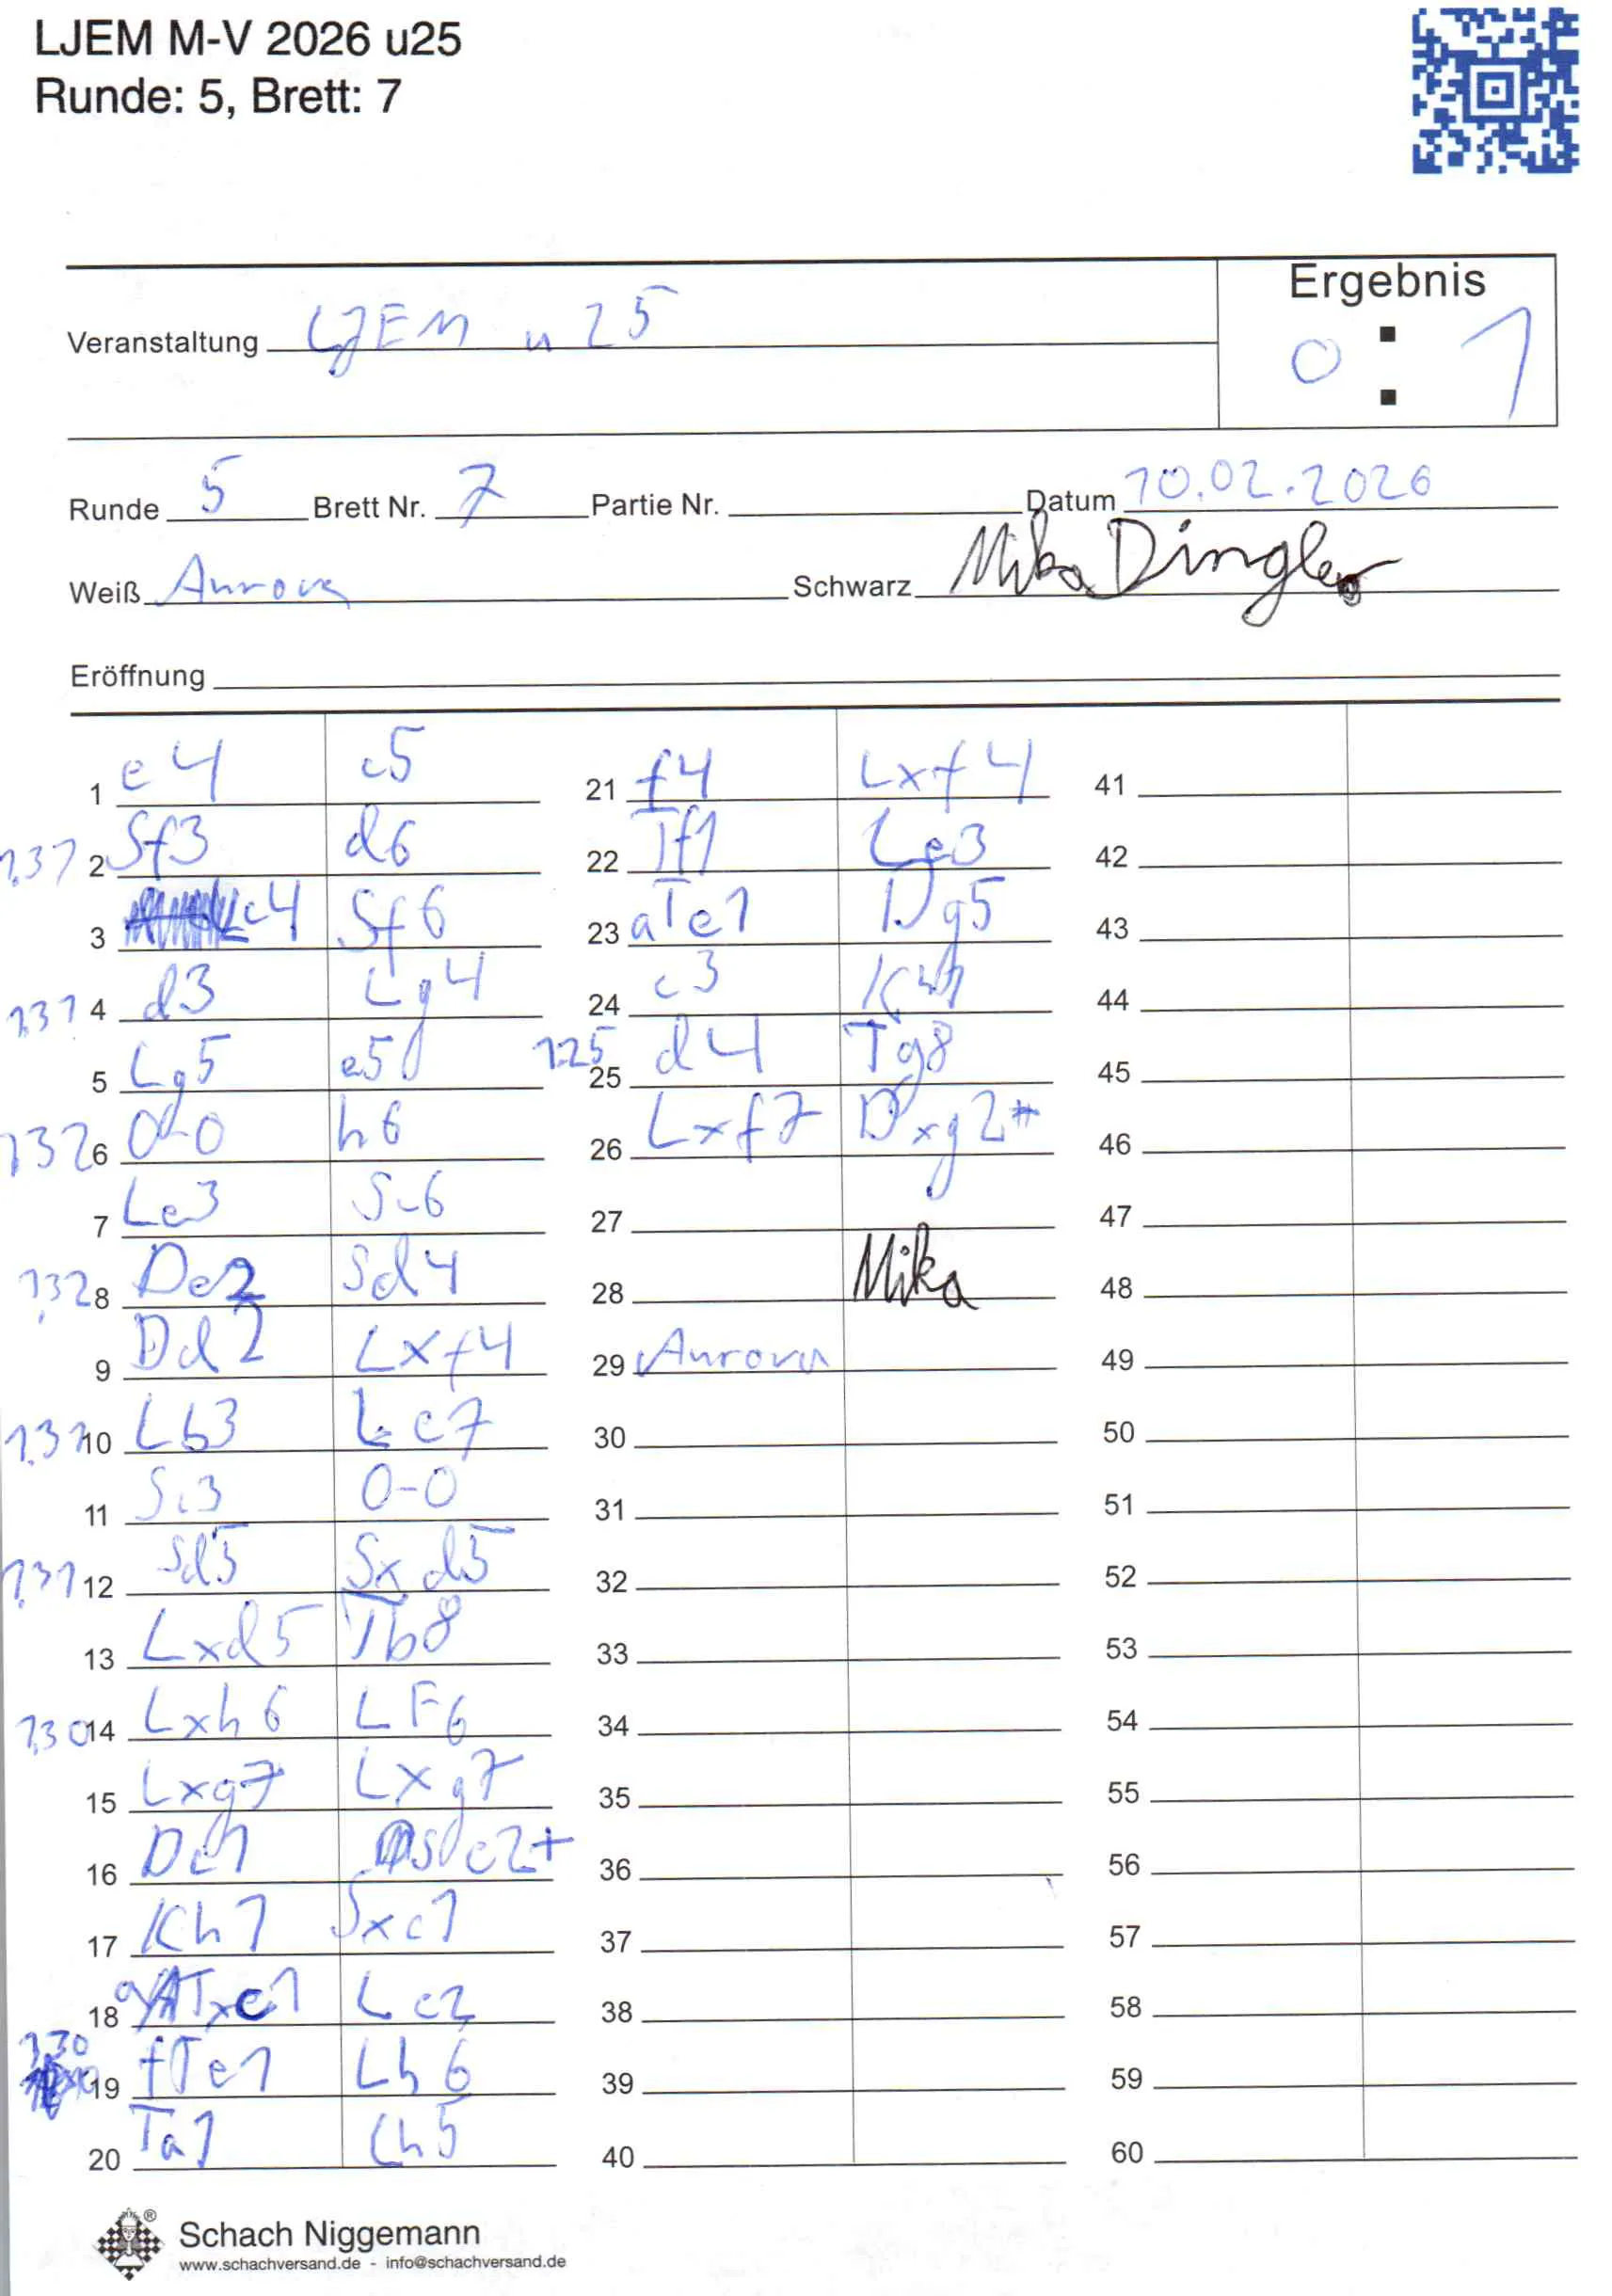 LJEM M-V 2026 u25
Runde: 5, Brett: 7
Ergebnis
Veranstaltung LJEM u25
0 : 1
Runde 5 Brett Nr. 7 Partie Nr. Datum 10.02.2026
Weiß Aurora Schwarz Mika Dingler
Eröffnung
1 e4 c5 21 f4 Lxf4 41
1.31 2 Sf3 d6 22 Tf1 Le3 42
3 Lc4 Sf6 23 aTe1 Dg5 43
1.31 4 d3 Lg4 24 c3 Kh7 44
5 Lg5 e5 1.25 25 d4 Tg8 45
1.32 6 0-0 h6 26 Lxf7 Dxg2# 46
7 Le3 Sc6 27 47
1.32 8 De2 Sd4 28 Mika 48
9 Dd2 Lxf4 29 Aurora 49
1.31 10 Lb3 Le7 30 50
11 Sc3 0-0 31 51
1.31 12 Sd5 Sxd5 32 52
13 Lxd5 Tb8 33 53
1.30 14 Lxh6 LF6 34 54
15 Lxg7 Lxg7 35 55
16 Dc1 Se2+ 36 56
17 Kh1 Sxc1 37 57
18 aTxc1 Le2 38 58
1.30 19 fTe1 Lh6 39 59
20 Ta1 Lh5 40 60
Schach Niggemann
www.schachversand.de - info@schachversand.de